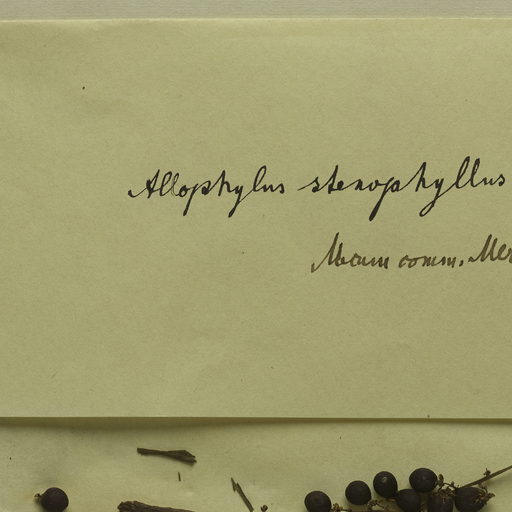 Allophylus stenophyllus
comm. Mer